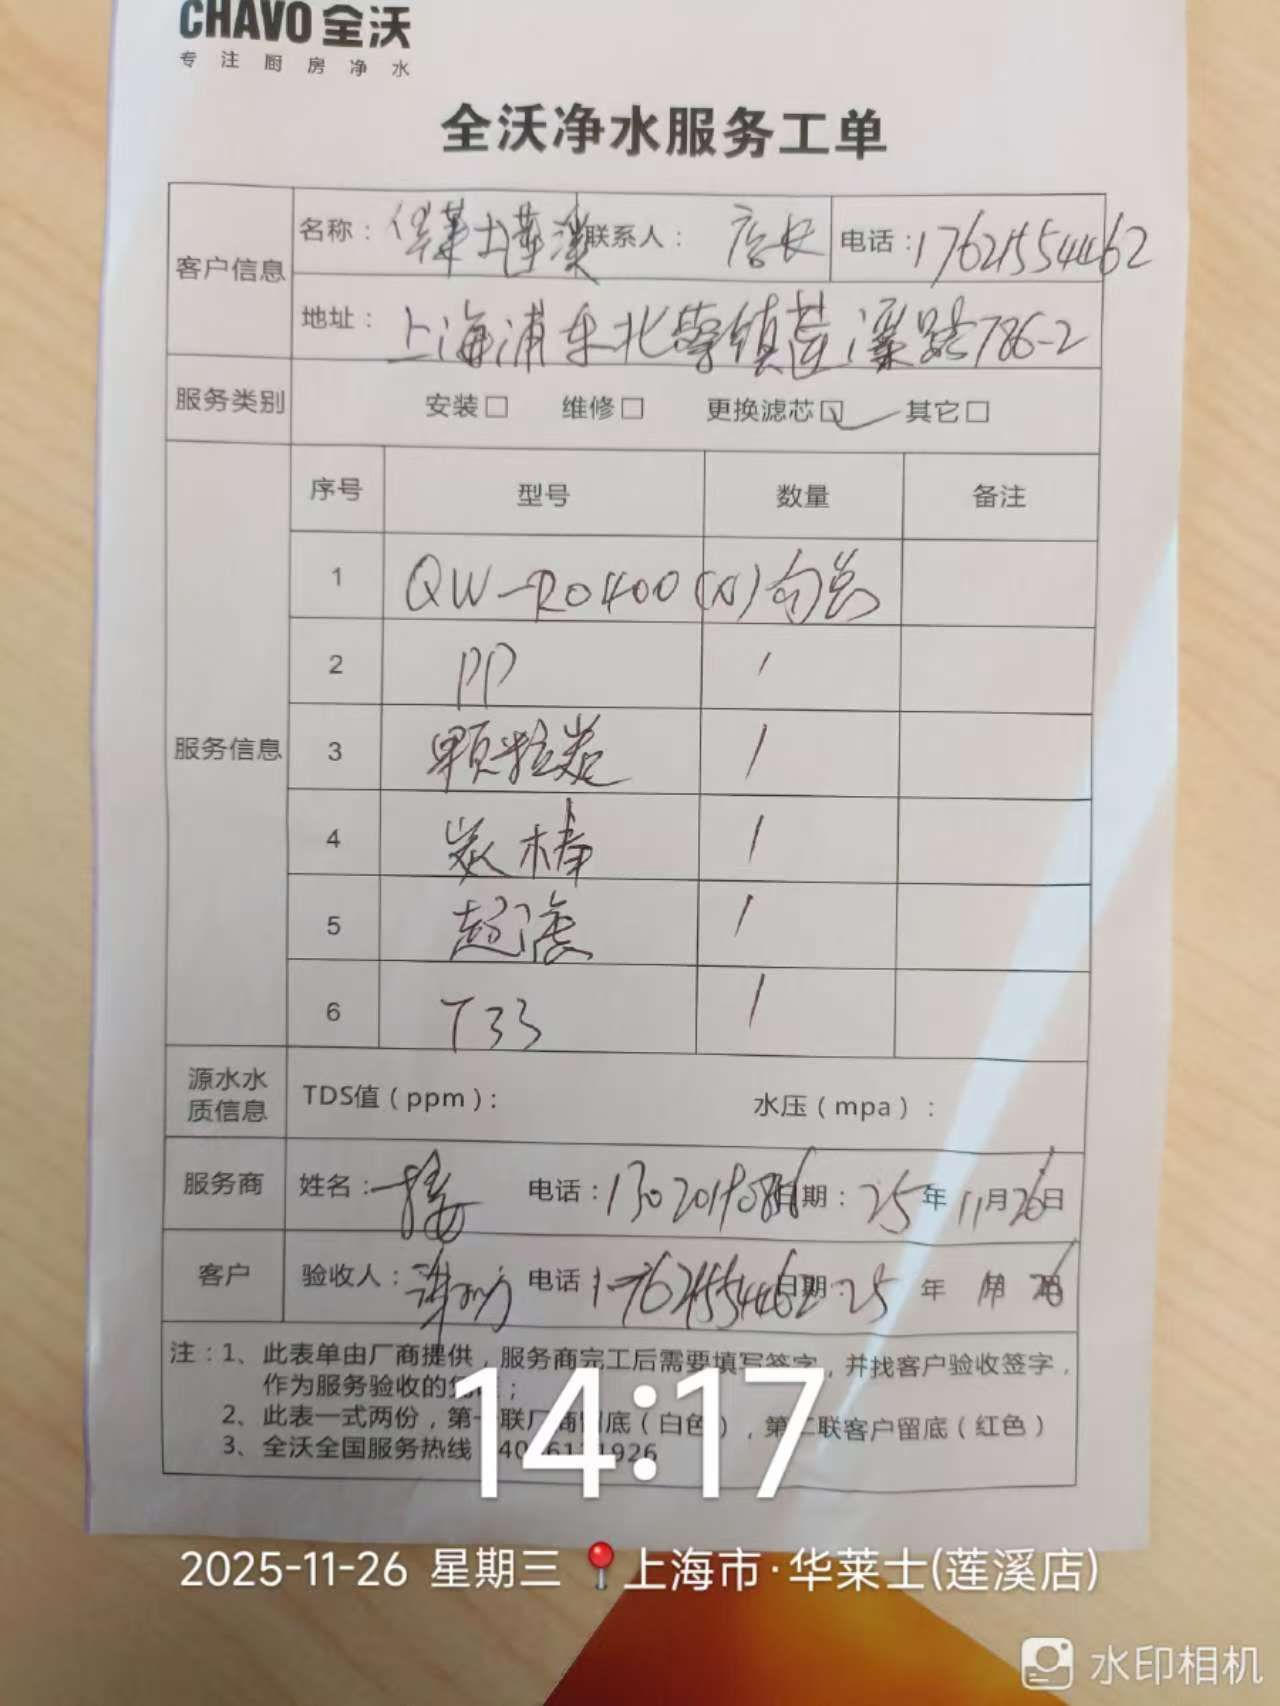 CHAVO 全沃
专注厨房净水
全沃净水服务工单
客户信息 名称：华莱士莲溪 联系人：店长 电话：17621554462
地址：上海浦东北蔡镇莲溪路786-2
服务类别 安装□ 维修□ 更换滤芯☑ 其它□
服务信息 序号 型号 数量 备注
1 QW-RO400(A)
2 PP 1
3 颗粒炭 1
4 炭棒 1
5 超滤 1
6 T33 1
源水水质信息 TDS值（ppm）： 水压（mpa）：
服务商 姓名： 电话：130201 日期：25年11月26日
客户 验收人：谢 电话：17621554462 日期：25年11月26日
注：1、此表单由厂商提供，服务商完工后需要填写签字，并找客户验收签字，
作为服务验收的凭证；
2、此表一式两份，第一联厂商留底（白色），第二联客户留底（红色）
3、全沃全国服务热线 1926
14:17
2025-11-26 星期三 上海市·华莱士(莲溪店)
水印相机